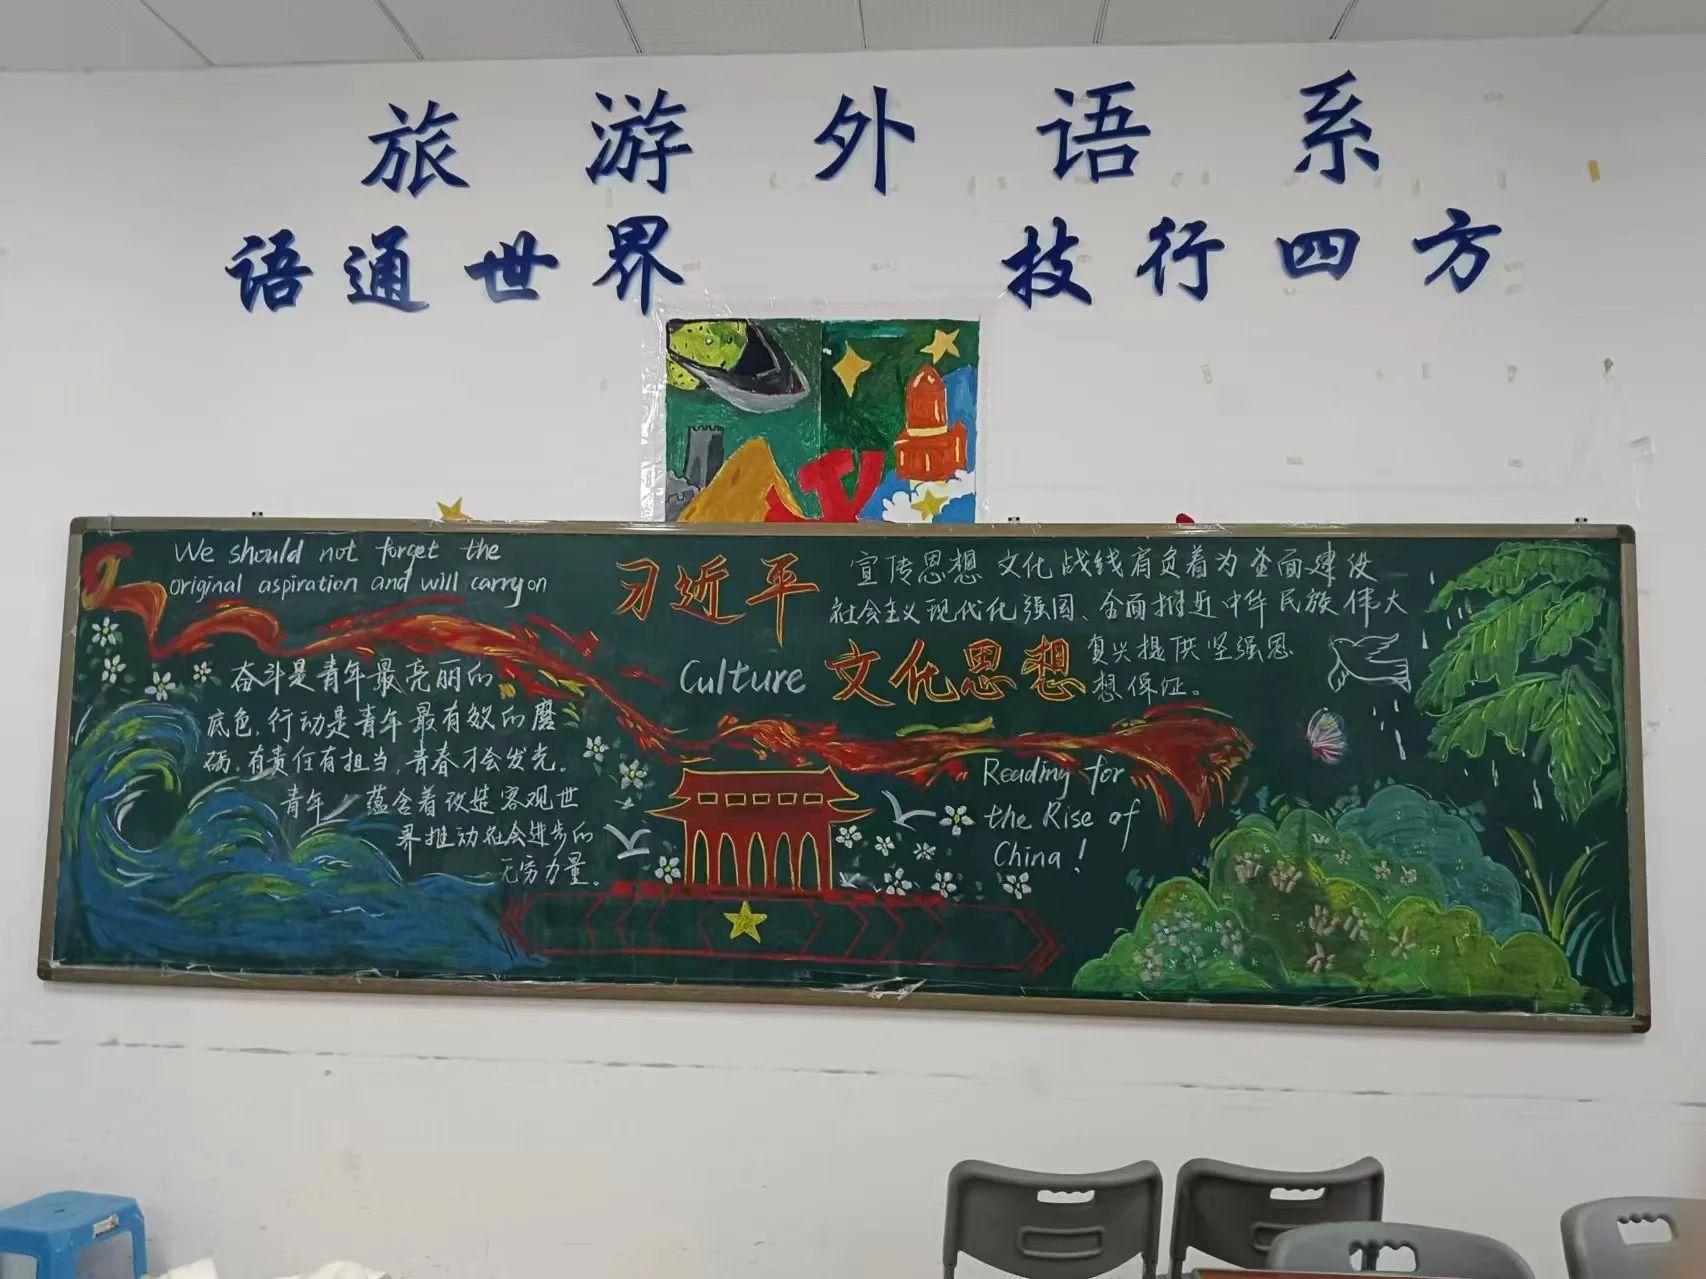 旅游外语系
语通世界 技行四方
We should not forget the
original aspiration and will carry on
奋斗是青年最亮丽的
底色,行动是青年最有效的磨
砺。有责任有担当,青春才会发光。
青年 蕴含着改造客观世
界推动社会进步的
无穷力量。
习近平
Culture 文化思想
宣传思想文化战线肩负着为全面建设
社会主义现代化强国、全面推进中华民族伟大
复兴提供坚强思
想保证。
Reading for
the Rise of
China!